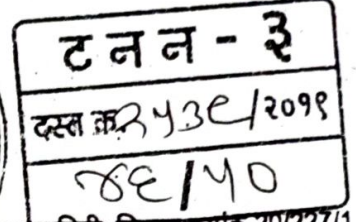 ट न न - ३
दस्त क्र.२५३९/२०१९
४६/५०